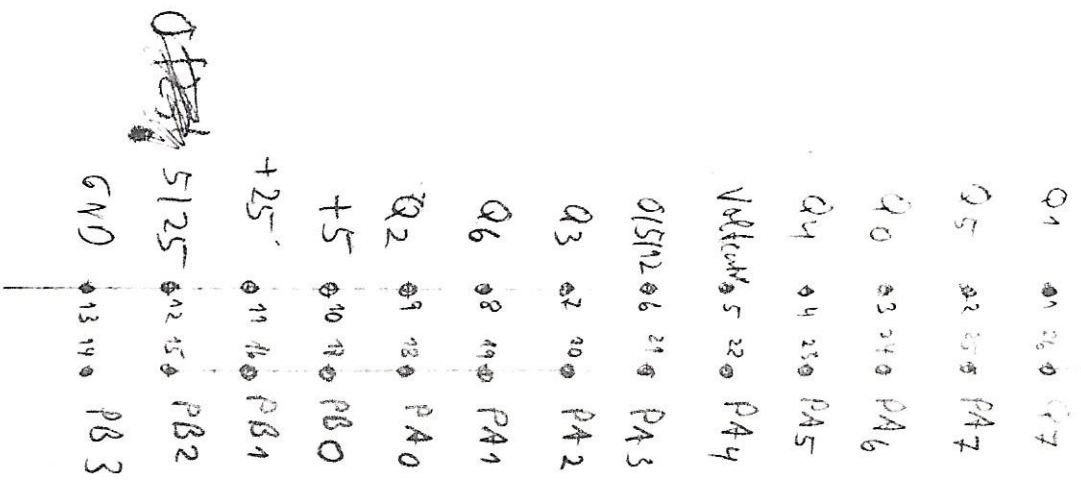 Q1 1 26 Q7
Q5 2 25 PA7
Q0 3 24 PA6
Q4 4 23 PA5
5 22 PA4
0/5/12 6 21 PA3
Q3 7 20 PA2
Q6 8 19 PA1
Q2 9 18 PA0
+5 10 17 PB0
+25 11 16 PB1
5/25 12 15 PB2
GND 13 14 PB3